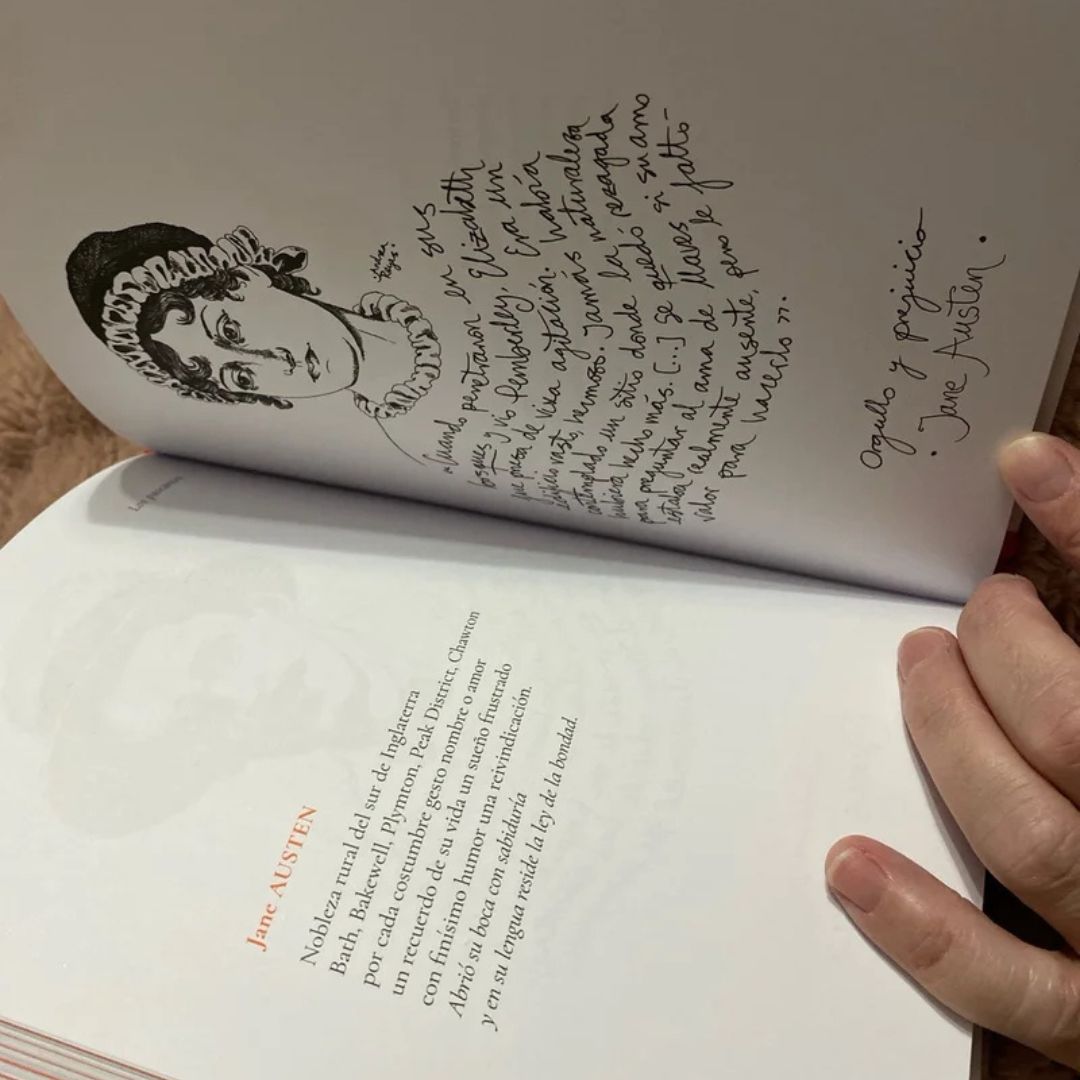 Jane AUSTEN
Nobleza rural del sur de Inglaterra
Bath, Bakewell, Plymton, Peak District, Chawton
por cada costumbre gesto nombre o amor
un recuerdo de su vida un sueño frustrado
con finísimo humor una reivindicación.
Abrió su boca con sabiduría
y en su lengua reside la ley de la bondad.
Andrea
Reyes
«Cuando penetraron en sus
bosques y vió Pemberley, Elizabeth
fue presa de viva agitación. Era un
edificio vasto, hermoso. Jamás había
contemplado un sitio donde la naturaleza
hubiera hecho más. [...] se quedó rezagada
para preguntar al ama de llaves si su amo
estaba realmente ausente, pero le faltó
valor para hacerlo».
Orgullo y prejuicio
. Jane Austen.